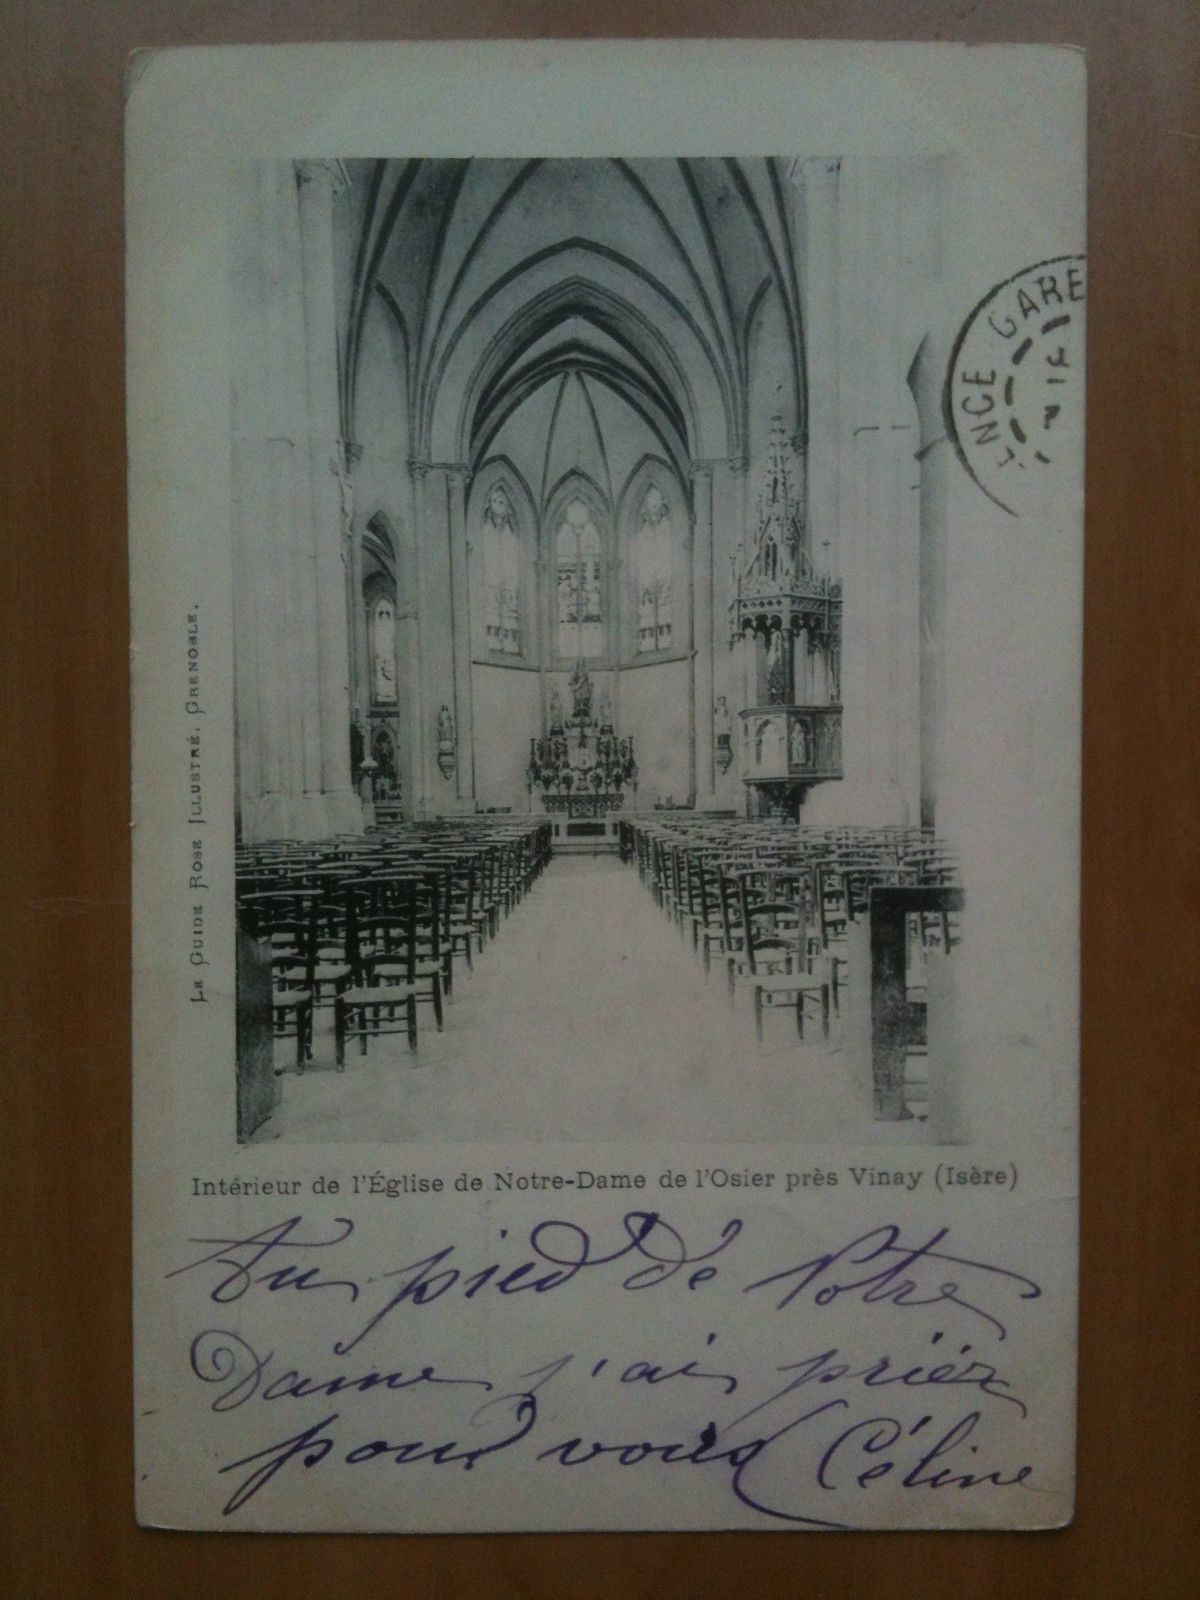 ENCE GARE
LE GUIDE ROSE ILLUSTRÉ, GRENOBLE.
Intérieur de l'Église de Notre-Dame de l'Osier près Vinay (Isère)
Au pied de Notre
Dame j'ai priér
pour vous Céline